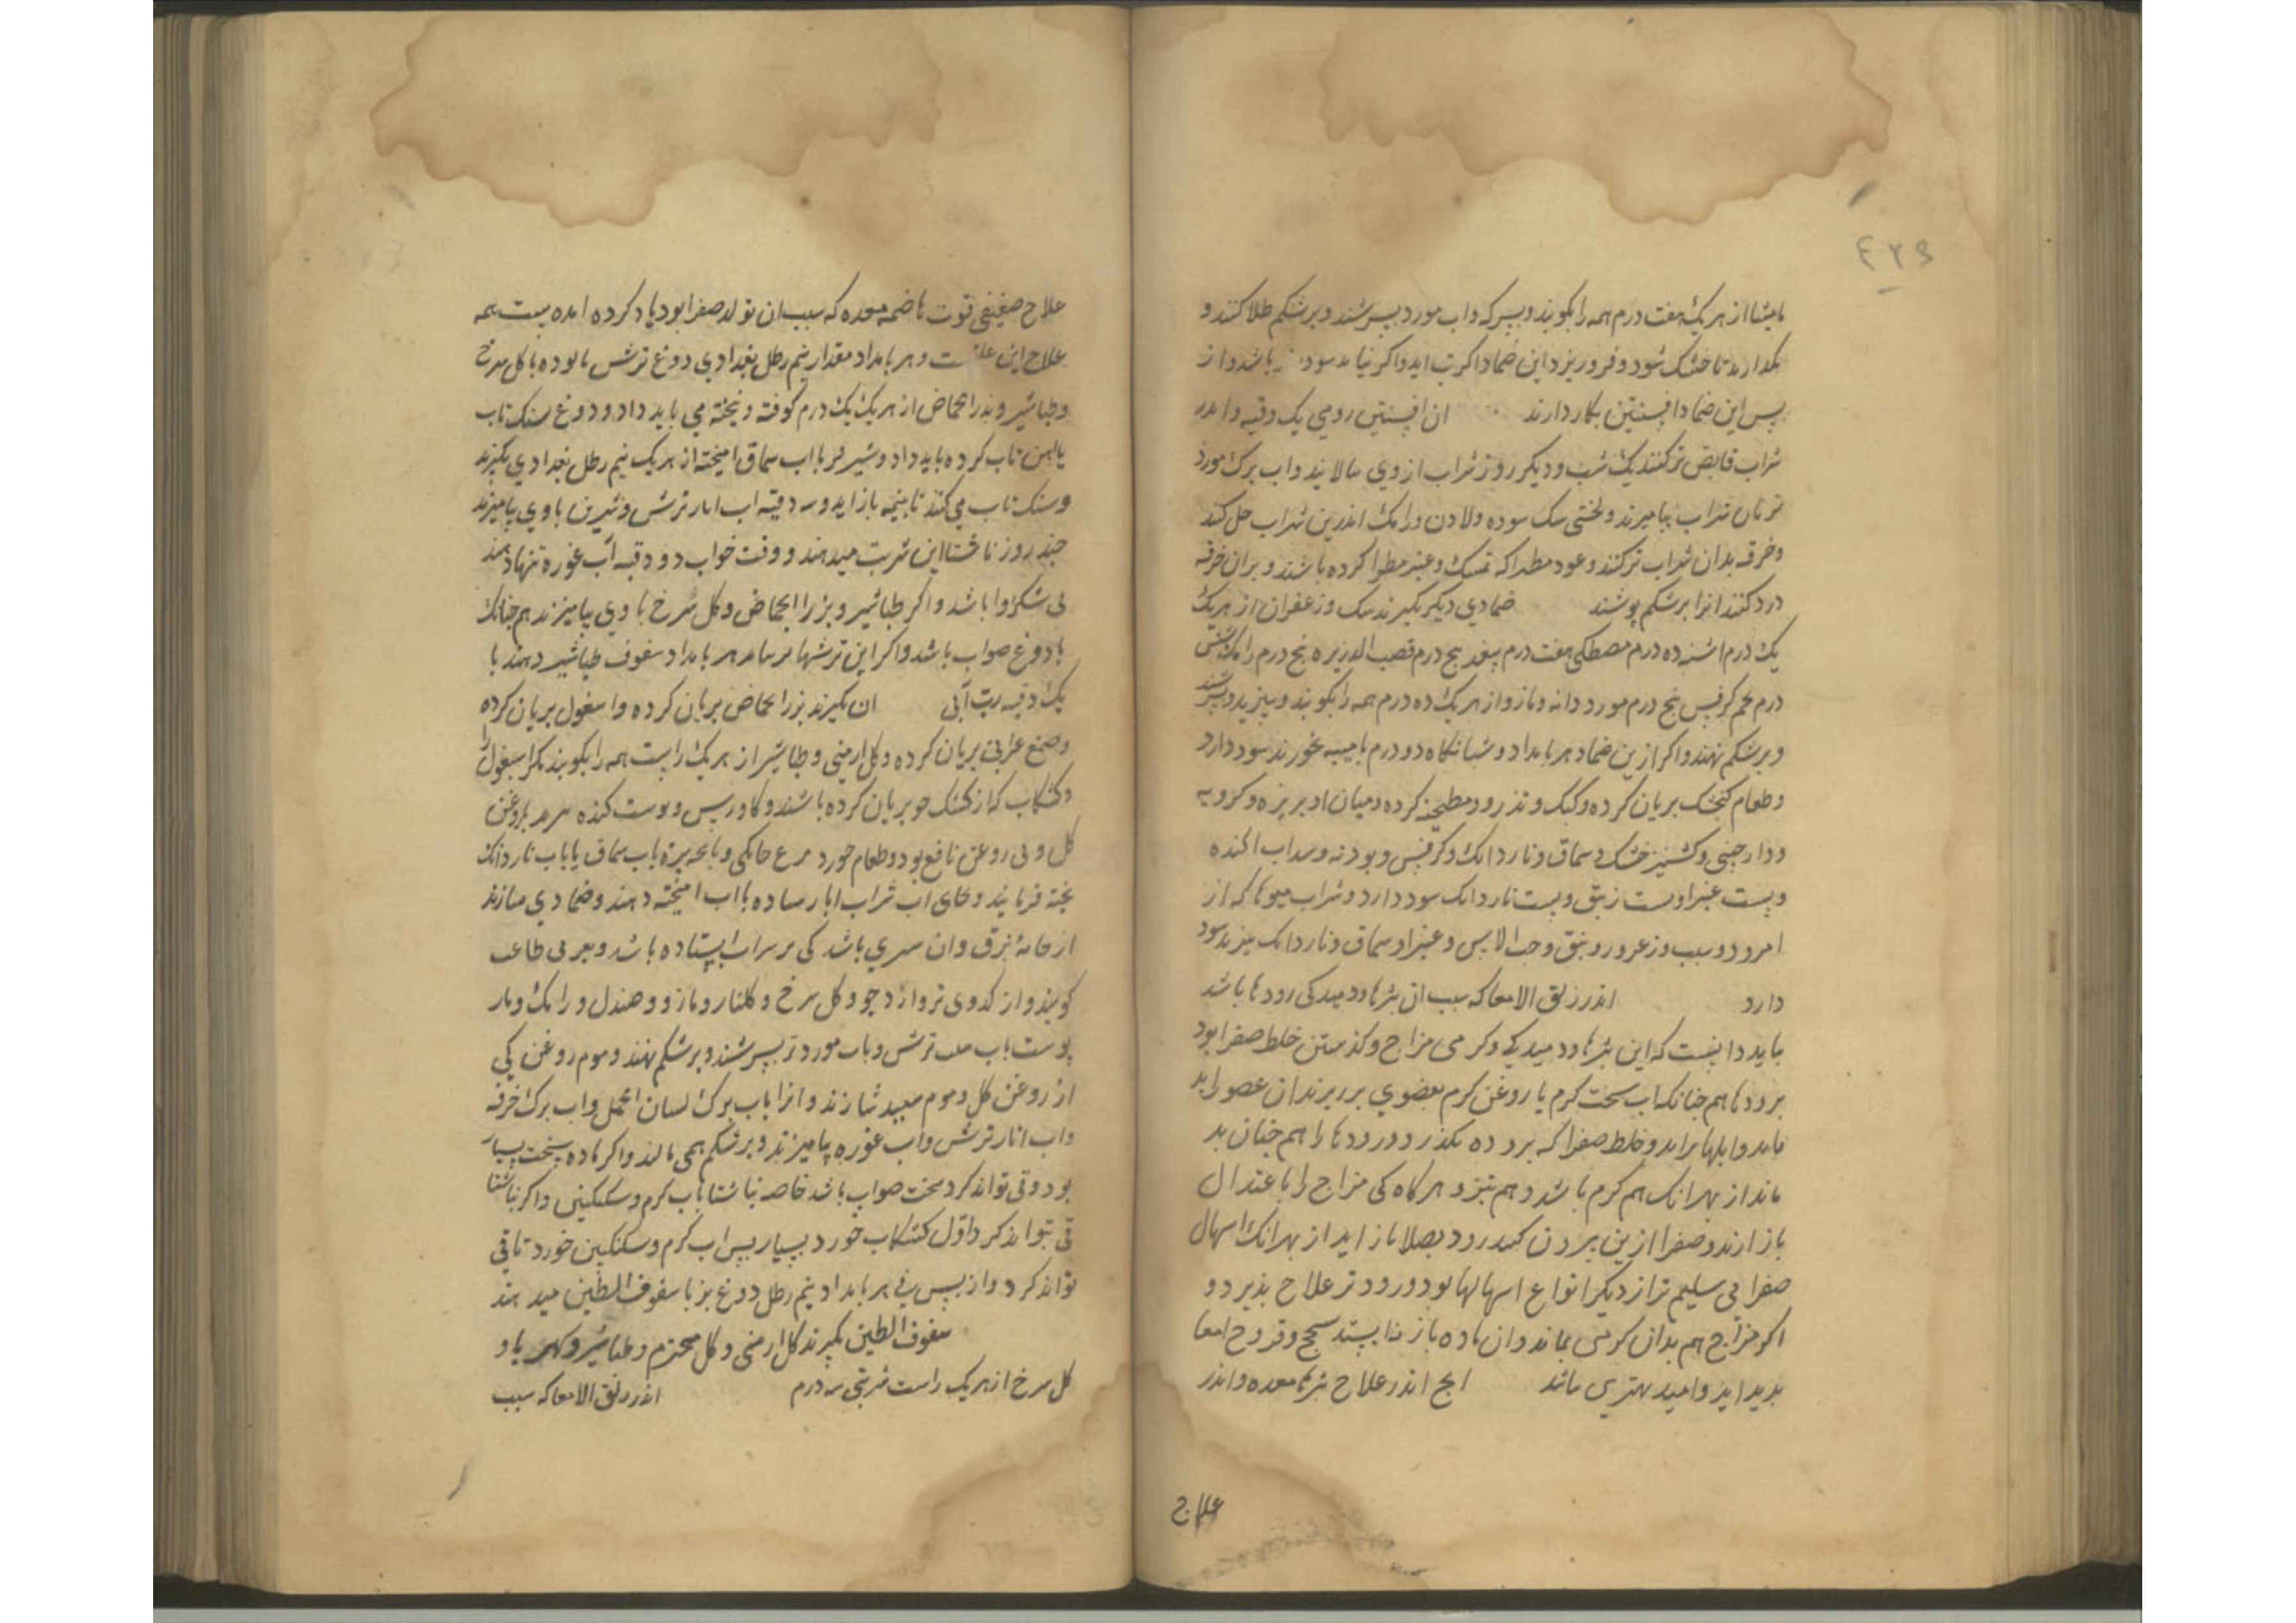 ۴۲۹
مامیثا از هر یک هفت درم همه را بکوبند و بسرکه و اب مورد بسرشند و بر شکم طلا کنند و
تا خشک شود و فرو ریزد این ضماد اکرت اید و اکر نیاید سود باشد و از
پس این ضماد افسنتین بکار دارند ان افسنتین رومی یک وقیه و اندر
شراب قابض تر کنند یک شب و دیکر روز شراب از وی بپالایند و اب برک مورد
شراب بیامیزند و لختی سک سوده و لادن و رامک اندرین شراب حل کنند
و خرقه بدان شراب تر کنند و عود مطرا که بمسک و عنبر مطرا کرده باشند و بران خرقه
کنند انرا بر شکم پوشند ضمادی دیکر بکیرند سک و زعفران از هر یک
یک درم اشنه ده درم مصطکی هفت درم پنج درم قصب الذریره پنج درم رامک شش
درم تخم کرفس پنج درم مورد دانه و مازو از هر یک ده درم همه را بکوبند و ببزند و بسرشند
و بر شکم نهند و اکر ازین ضماد هر بامداد و شبانکاه دو درم بامیبه بخورند سود دارد
و طعام کنجشک بریان کرده و کبک و تذرو و مطجنه کرده و میان او بزیره و کرویه
و دارچینی و کشنیز خشک و سماق و ناردانک و کرفس و بودنه و سداب اکنده
و پست غبیرا و پست نبق و پست ناردانک سود دارد و شراب میوها که از
امرود و سیب و زعرور و نبق و حب الاس و غبیرا و سماق و ناردانک پزند سود
دارد اندر زلق الامعا که سبب ان بثرها و دمیدکی رودها باشد
بباید دانست که این بثرها و دمیدکی و کرمی مزاج و کذشتن خلط صفرا بود
برودها هم جنانک اب سخت کرم یا روغن کرم بعضوی بر ریزند ان عضو را
و خلط صفرا که برو ده بکذرد و رودها را هم جنان
ماند از بهر انک هم کرم باشد و هم تیز و هر کاه کی مزاج را باعتدال
باز ارند و صفرا ازین رود بصلاح باز اید از بهر انک اسهال
صفرایی سلیم تر از دیکر انواع اسهالها بود و زودتر علاج بذیرد و
اکر مزاج هم بدان کرمی بماند و ان ماده باز نه ایستد سحج و قروح امعا
بدید اید و امید بهتری باشد اندر علاج بثرها معده و اندر
علاج
علاج ضعیفی قوت هاضمه معده که سبب ان تولد صفرا بود یاد کرده امده است همه
علاج این علت است و هر بامداد مقدار نیم رطل بغدادی دوغ ترش بالوده با کل سرخ
و طباشیر و بزر الحماض از هر یک یک درم کوفته و بیخته می باید داد و دوغ سنک تاب
یا اهن تاب کرده باید داد و شیر خر با اب سماق امیخته از هر یک نیم رطل بغدادی بکیرند
و سنک تاب می کنند تا بنیمه باز اید و سه وقیه اب انار ترش و شیرین با وی بیامیزند
جند روز ناشتا این شربت میدهند و وقت خواب دو وقیه آب غوره تنها دهند
بی شکر روا باشد و اکر طباشیر و بزر الحماض و کل سرخ با وی بیامیزند هم جنانک
با دوغ صواب باشد و اکر این ترشها هر بامداد سفوف طباشیر دهند با
یک وقیه رب آبی ان بکیرند بزر الحماض بریان کرده و اسبغول بریان کرده
و صمغ عربی بریان کرده و کل ارمنی و طباشیر از هر یک راست همه را بکوبند مکر اسبغول را
و کشکاب که از کشک جو بریان کرده باشند و کاورس و پوست کنده بروغن
کل و بی روغن نافع بود و طعام خورد مرغ خانکی و باب سماق یا باب ناردانک
بخته فرمایند و بجای اب شراب انار ساده با اب امیخته دهند و ضمادی سازند
از جامه غوک و ان سبزی باشد کی بر سر اب ایستاده باشد و بعربی طحلب
کویند و از کدوی تر و ارد جو و کل سرخ و کلنار و مازو و صندل و رامک و انار
پوست باب سیب ترش و باب مورد تر بسرشند و بر شکم نهند و موم روغن کی
از روغن کل و موم سپید سازند و انرا باب برک لسان الحمل و اب برک خرفه
و اب انار ترش و اب غوره بیامیزند و بر شکم همی مالند و اکر ماده سخت بسیار
بود و قی تواند کرد سخت صواب باشد خاصه ناشتا باب کرم و سکنکبین و اکر ناشتا
قی نتواند کرد اول کشکاب خورد بسیار پس اب کرم و سکنکبین خورد تا قی
تواند کرد و از پس قی هر بامداد نیم رطل دوغ بز با سفوف الطین میدهند
سفوف الطین بکیرند کل ارمنی و کل مختوم و طباشیر و کهربا و
کل سرخ از هر یک راست شربتی سه درم اندر زلق الامعا که سبب